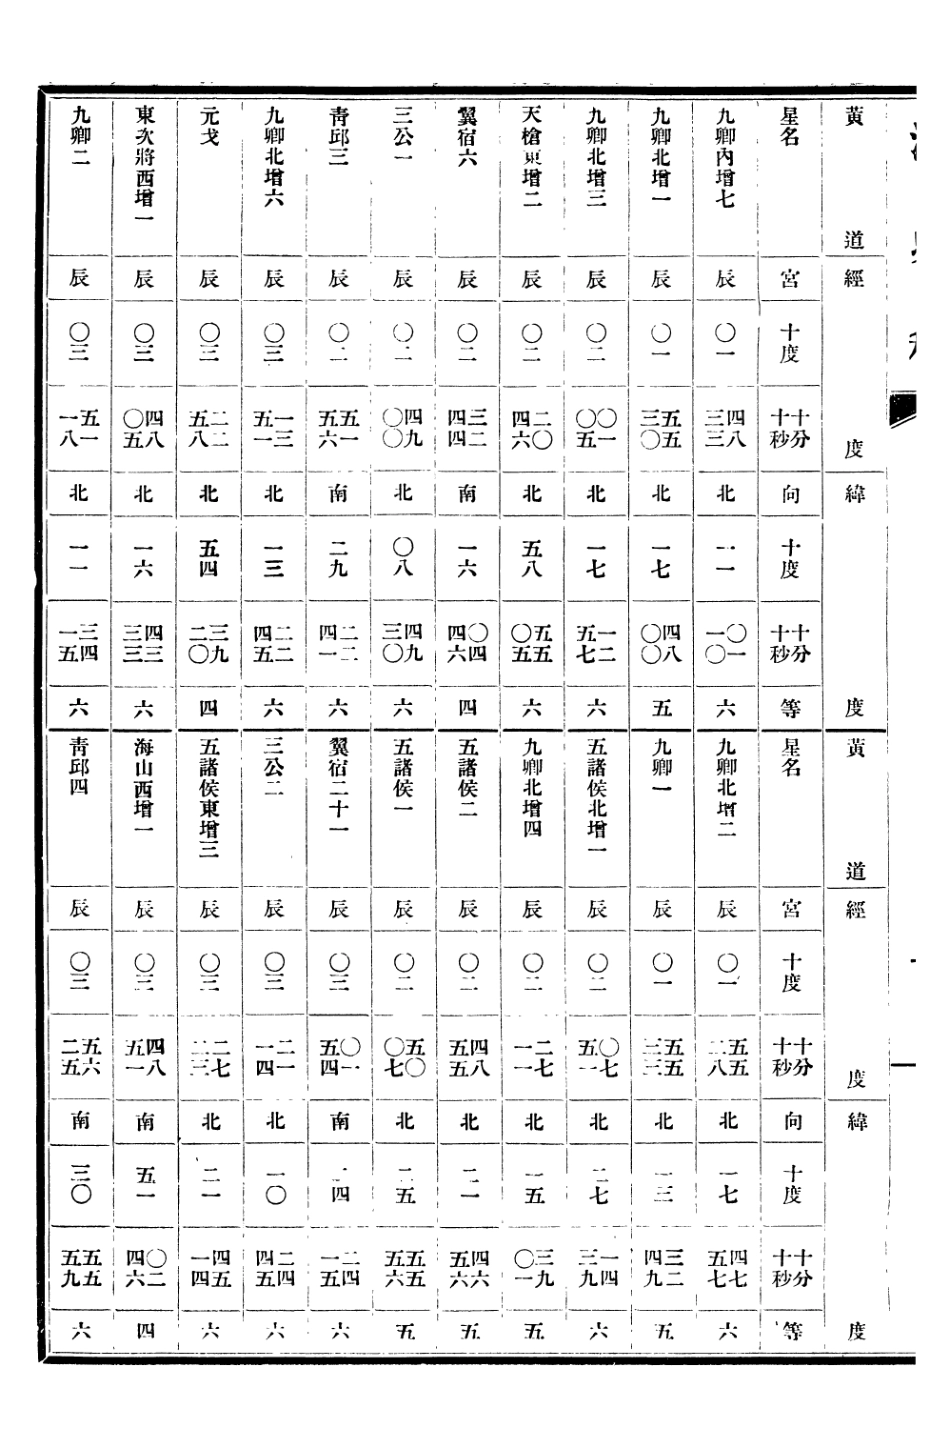 黃道經度緯度
星名 宮 十度 十分 十秒 向 十度 十分 十秒 等
九卿內增七 辰 〇一 四八 三三 北 一一 〇一 一〇 六
九卿北增一 辰 〇一 五五 三〇 北 一七 四八 〇〇 五
九卿北增三 辰 〇二 〇一 〇五 北 一七 一二 五七 六
天槍東增二 辰 〇二 二〇 四六 北 五八 五五 〇五 六
翼宿六 辰 〇二 三二 四四 南 一六 〇四 四六 四
三公一 辰 〇二 四九 〇〇 北 〇八 四九 三〇 六
靑邱三 辰 〇二 五一 五六 南 二九 二二 四一 六
九卿北增六 辰 〇三 一三 五一 北 一三 二二 四五 六
元戈 辰 〇三 二二 五八 北 五四 三九 二〇 四
東次將西增一 辰 〇三 四八 〇五 北 一六 四三 三三 六
九卿二 辰 〇三 五一 一八 北 一一 三四 一五 六
黃道經度緯度
星名 宮 十度 十分 十秒 向 十度 十分 十秒 等
九卿北增二 辰 〇一 五五 二八 北 一七 四七 五七 六
九卿一 辰 〇一 五五 三三 北 一三 三二 四九 五
五諸侯北增一 辰 〇二 〇七 五一 北 二七 一四 三九 六
九卿北增四 辰 〇二 二七 一一 北 一五 三九 〇一 五
五諸侯二 辰 〇二 四八 五五 北 二一 四六 五六 五
五諸侯一 辰 〇二 五〇 〇七 北 二五 五五 五六 五
翼宿二十一 辰 〇三 〇一 五四 南 一四 二四 一五 六
三公二 辰 〇三 二一 一四 北 一〇 二四 四五 六
五諸侯東增三 辰 〇三 二七 二三 北 二一 四五 一四 六
海山西增一 辰 〇三 四八 五一 南 五一 〇二 四六 四
靑邱四 辰 〇三 五六 二五 南 三〇 五五 五九 六